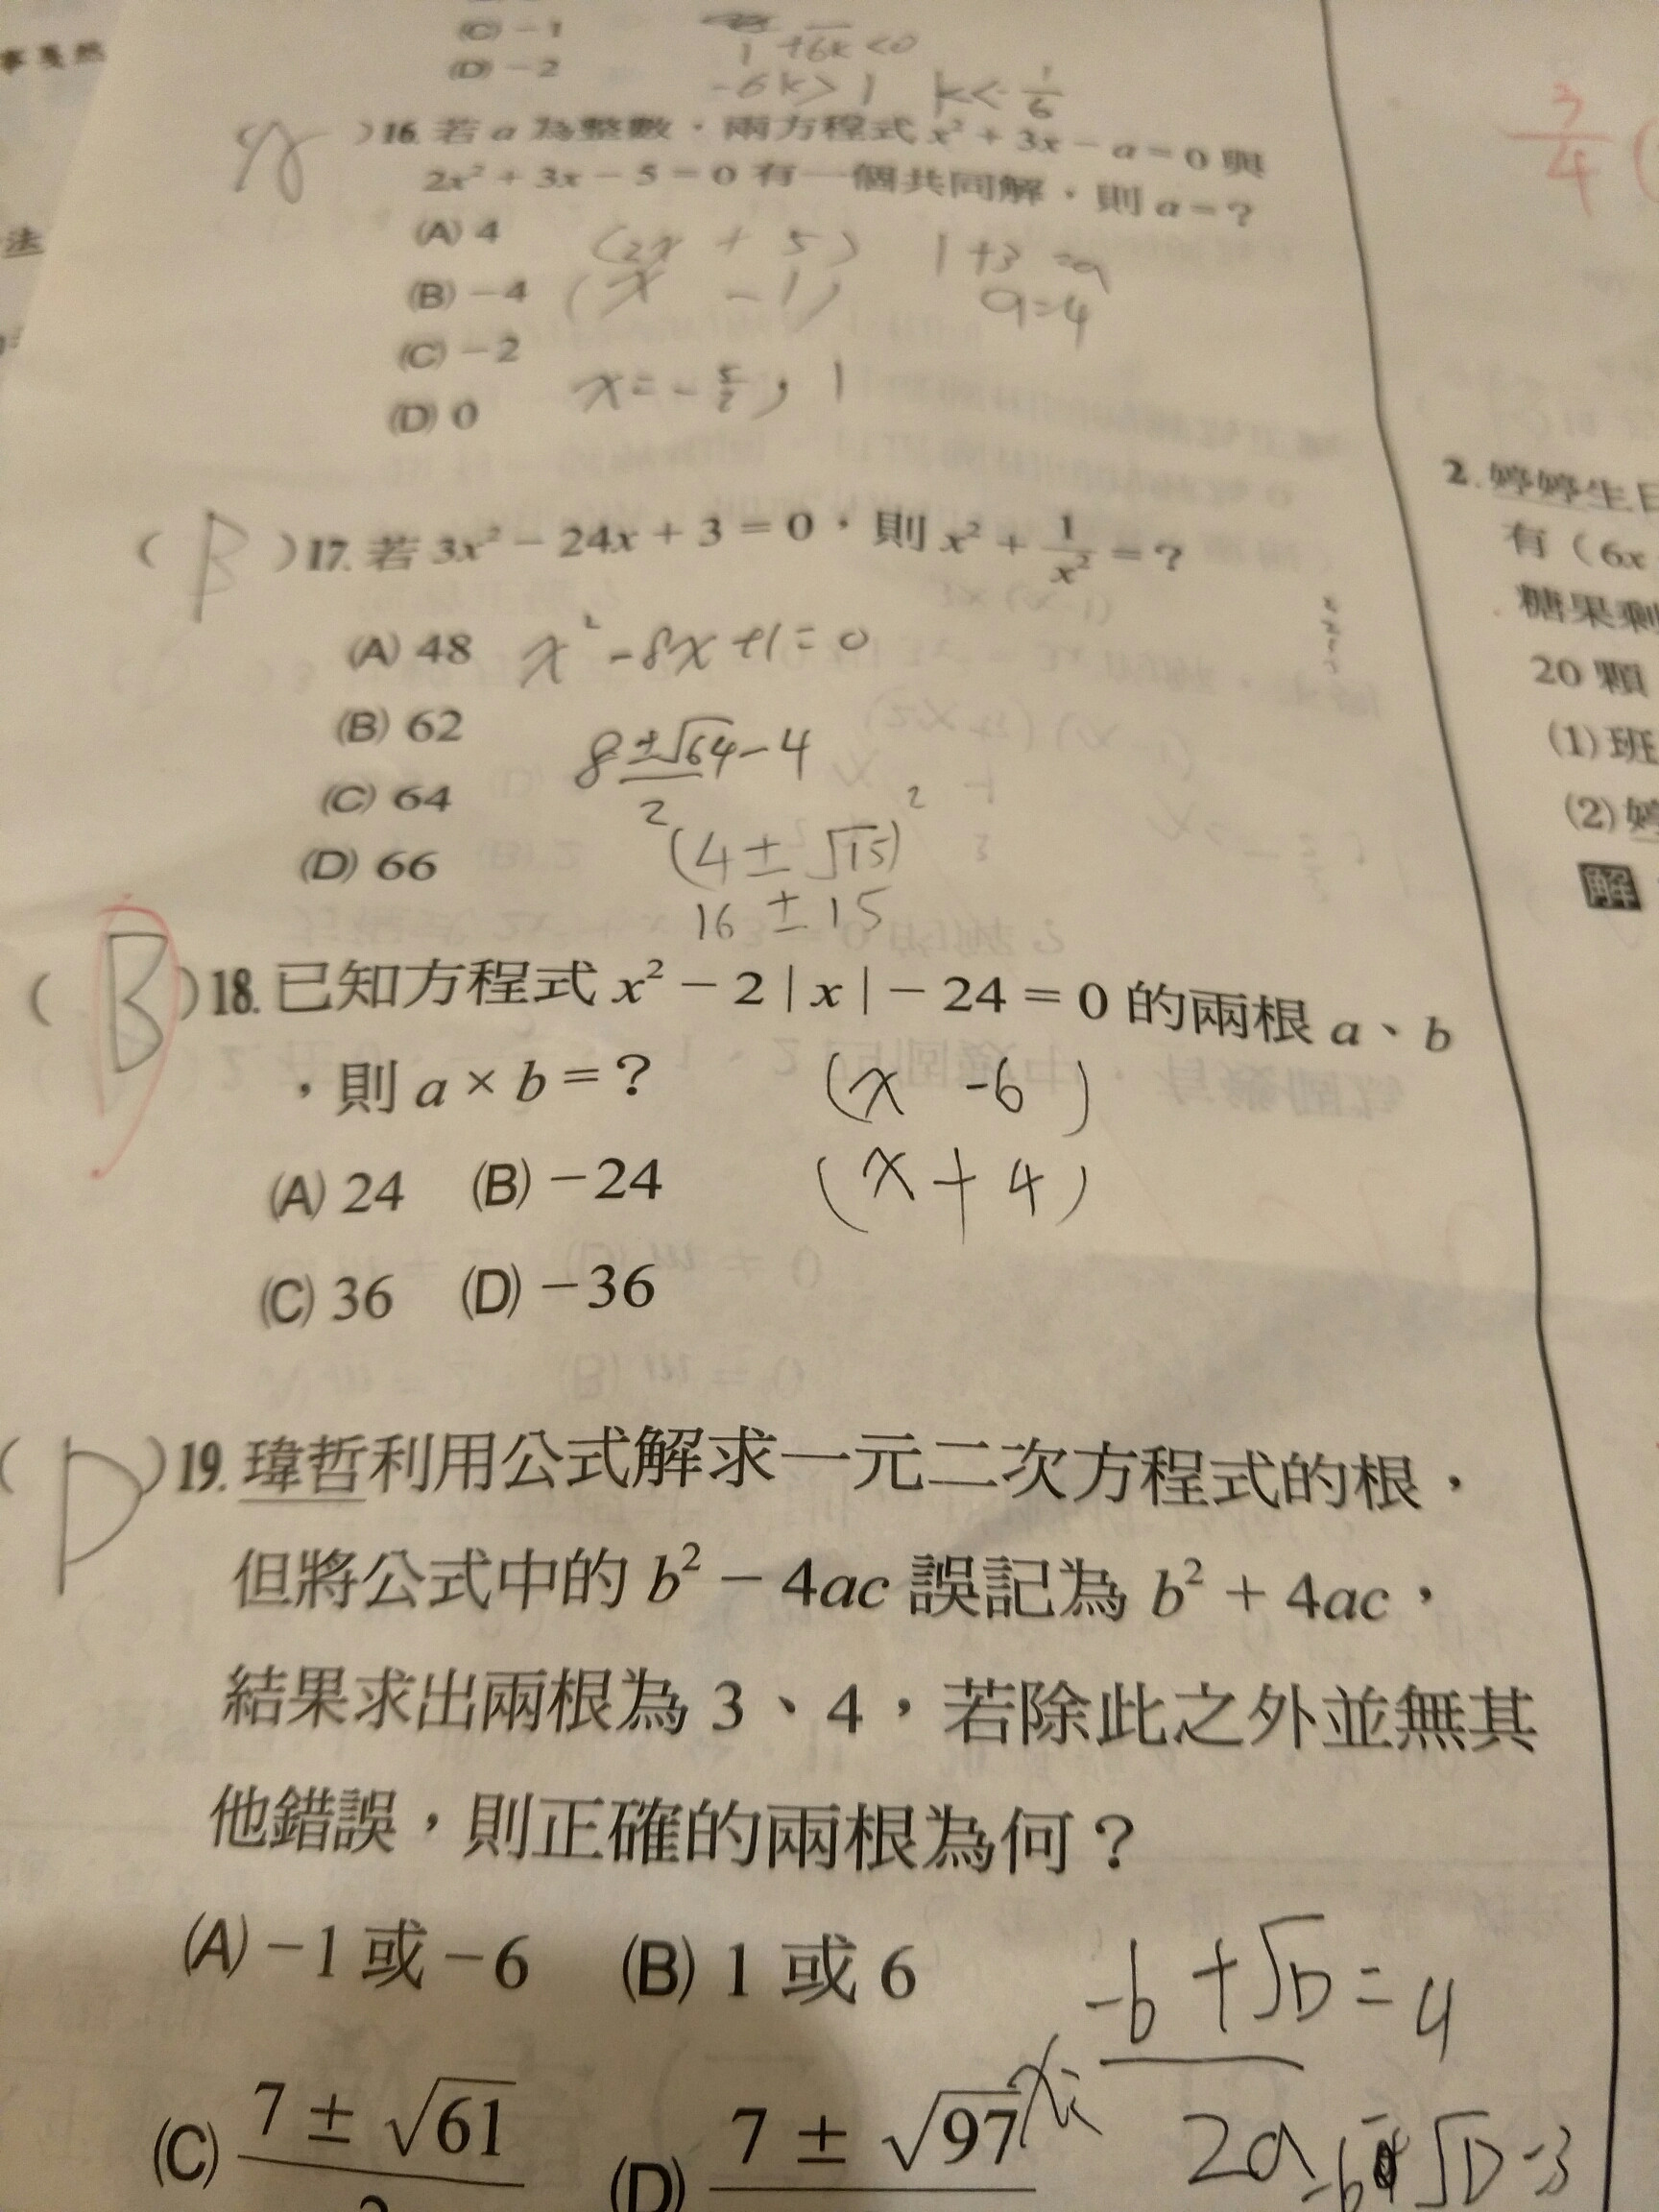 (C) −1
1 + 6k < 0
(D) −2
-6k > 1 k < -1/6
)16. 若 a 為整數，兩方程式 x² + 3x − a = 0 與
2x² + 3x − 5 = 0 有一個共同解，則 a = ?
(A) 4
(2x + 5) 1 + 3 = a
(B) −4
(x - 1) a = 4
(C) −2
x = -5/2, 1
(D) 0
( B )17. 若 3x² − 24x + 3 = 0，則 x² + 1/x² = ?
(A) 48
x² - 8x + 1 = 0
(B) 62
8 ± √64 - 4
2
(C) 64
(4 ± √15)²
(D) 66
16 ± 15
( B )18. 已知方程式 x² − 2 | x | − 24 = 0 的兩根 a、b
，則 a × b = ?
(x - 6)
(A) 24 (B) −24
(x + 4)
(C) 36 (D) −36
( D )19. 瑋哲利用公式解求一元二次方程式的根，
但將公式中的 b² − 4ac 誤記為 b² + 4ac，
結果求出兩根為 3、4，若除此之外並無其
他錯誤，則正確的兩根為何？
(A) −1 或 −6 (B) 1 或 6
-b + √D = 4
2a
(C) 7 ± √61
(D) 7 ± √97
3/4
2. 婷婷生日
有（6x
糖果剩
20 顆
(1) 班
(2) 婷
解
法